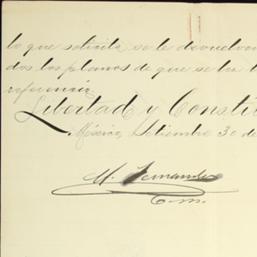 lo que solicita se le devuelvan
dos los planos de que se ha
referencia.
Libertad y Constitu
México, Setiembre 30 de
M. Fernandez
O. m.